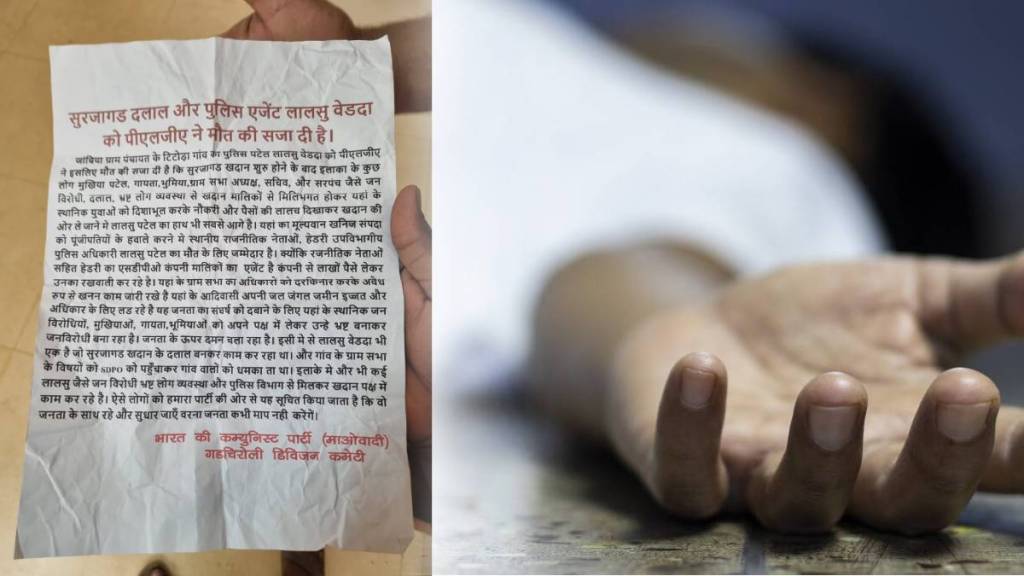 सुरजागड दलाल और पुलिस एजेंट लालसु वेडदा
को पीएलजीए ने मौत की सजा दी है।
जांबिया ग्राम पंचायत के टिटोढ़ा गांव का पुलिस पटेल लालसु वेडदा को पीएलजीए
ने इसलिए मौत की सजा दी है कि सुरजागड खदान शुरु होने के बाद इलाका के कुछ
लोग मुखिया पटेल, गायता,भुमिया,ग्राम सभा अध्यक्ष, सचिव, और सरपंच जैसे जन
विरोधी, दलाल, भ्रष्ट लोग व्यवस्था से खदान मालिकों से मिलिभगत होकर यहां के
स्थानिक युवाओं को दिशाभूल करके नौकरी और पैसों की लालच दिखाकर खदान की
ओर ले जाने मे लालसु पटेल का हाथ भी सबसे आगे है। यहां का मूल्यवान खनिज संपदा
को पूंजीपतियों के हवाले करने मे स्थानीय राजनीतिक नेताओं, हेडरी उपविभागीय
पुलिस अधिकारी लालसु पटेल का मौत के लिए जम्मेदार है। क्योंकि रजनीतिक नेताओं
सहित हेडरी का एसडीपीओ कंपनी मालिकों का एजेंट है कंपनी से लाखों पैसे लेकर
उनका रखवाली कर रहे है। यहा के ग्राम सभा का अधिकारो को दरकिनार करके अवैध
रुप से खनन काम जारी रखे है यहां के आदिवासी अपनी जल जंगल जमीन इज्जत और
अधिकार के लिए लड रहे है यह जनता का संघर्ष को दबाने के लिए यहां के स्थानिक जन
विरोधियों, मुखियाओं, गायता,भूमियाओं को अपने पक्ष में लेकर उन्हे भ्रष्ट बनाकर
जनविरोधी बना रहा है। जनता के ऊपर दमन चला रहा है। इसी मे से लालसु वेडदा भी
एक है जो सुरजागड खदान के दलाल बनकर काम कर रहा था। और गांव के ग्राम सभा
के विषयों को SDPO को पहुँचाकर गांव वालो को धमका ता था। इलाके मे और भी कई
लालसु जैसे जन विरोधी भ्रष्ट लोग व्यवस्था और पुलिस विभाग से मिलकर खदान पक्ष में
काम कर रहे है। ऐसे लोगों को हमारा पार्टी की ओर से यह सूचित किया जाता है कि वो
जनता के साथ रहे और सुधार जाएँ वरना जनता कभी माप नही करेगें।
भारत की कम्युनिस्ट पार्टी (माओवादी)
गडचिरोली डिविजन कमेटी